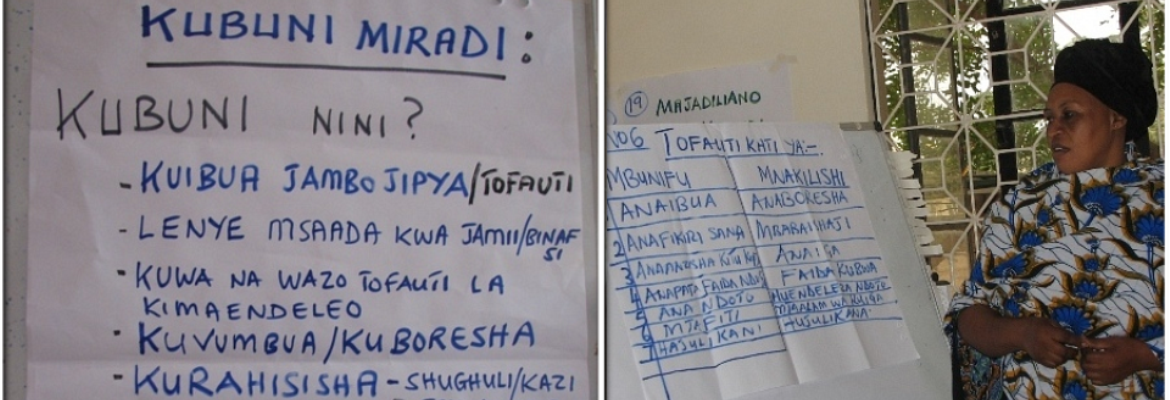 KUBUNI MIRADI:
KUBUNI NINI?
- KUIBUA JAMBO JIPYA/TOFAUTI
- LENYE MSAADA KWA JAMII/BINAF
SI
- KUWA NA WAZO TOFAUTI LA
KIMAENDELEO
- KUVUMBUA/KUBORESHA
- KURAHISISHA - SHUGHULI/KAZI
19 MAJADILIANO
NO6 TOFAUTI KATI YA:-.
MBUNIFU MNAKILISHI
1 ANAIBUA ANABORESHA
2 ANAFIKIRI SANA
3 ANAIGA
4 FAIDA KUBWA
5 ANA NDOTO HUENDELEZA NDOTO
6 MTAFITI
7 HAJULIKANI HUJULIKANA